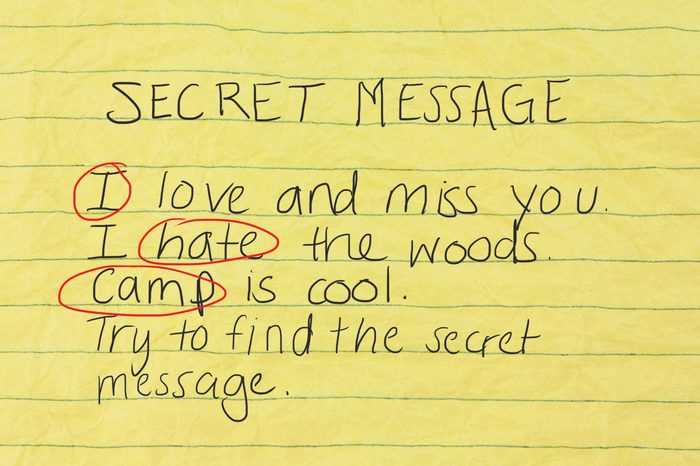 SECRET MESSAGE
I love and miss you.
I hate the woods.
Camp is cool.
Try to find the secret
message.